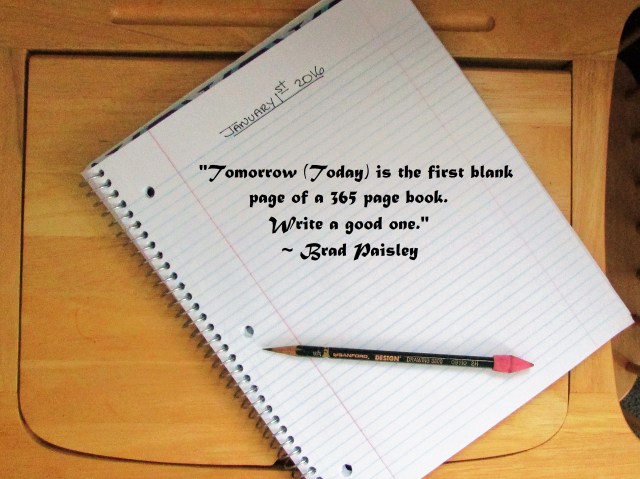 JANUARY 1ST 2016
"Tomorrow (Today) is the first blank
page of a 365 page book.
Write a good one."
~ Brad Paisley
SANFORD. DESIGN DRAWING